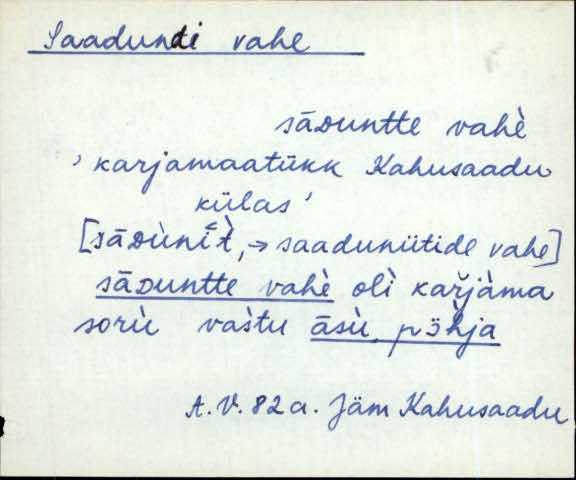 Saadundi vahe
sāᴅuntte vahè
' karjamaatükk Kahusaadu
külas '
[sāᴅùnìt̀, → saaduniitide vahe]
sāᴅuntte vahè olì karjàma
sorù vaštu āsù põhja
A.V. 82 a. Jäm Kahusaadu